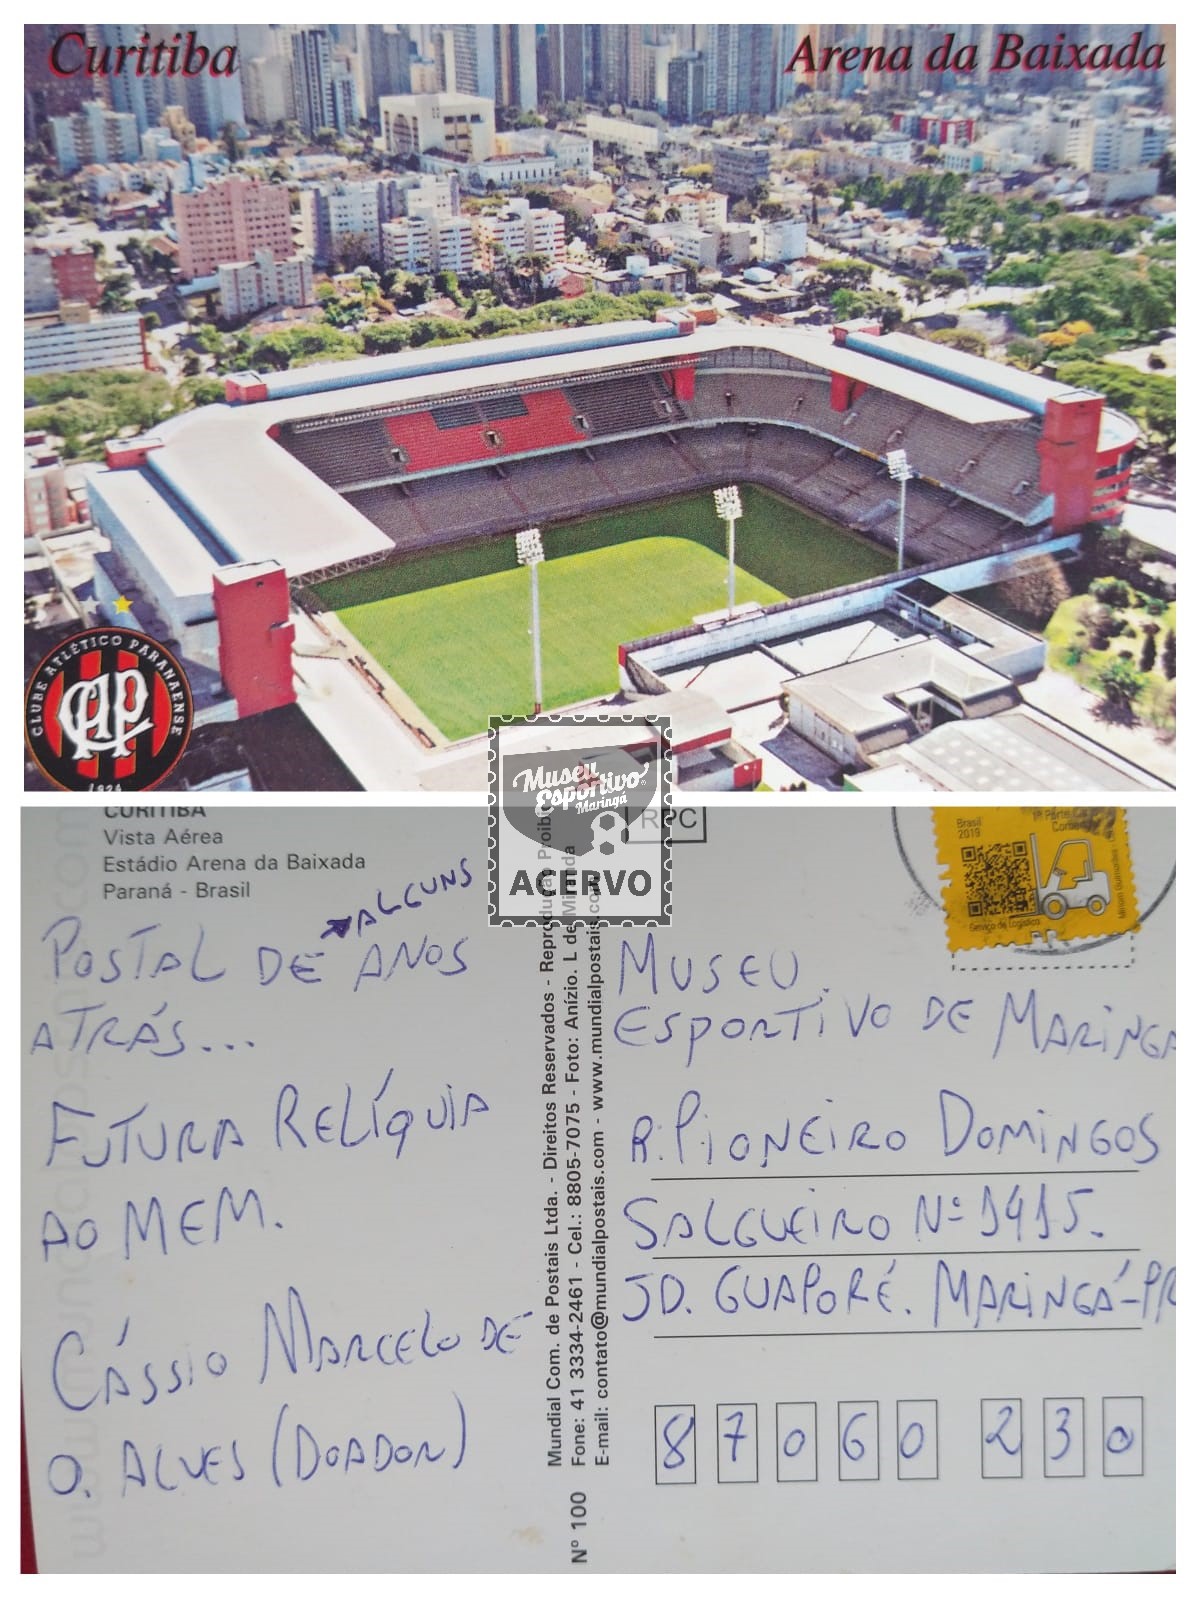 Curitiba
Arena da Baixada
CLUBE ATLÉTICO PARANAENSE
CAP
1924
Museu
Esportivo
Maringá
ACERVO
CURITIBA
Vista Aérea
Estádio Arena da Baixada
Paraná - Brasil
RPC
Brasil
2019
1º Porte
Serviço de Logística
ALGUNS
POSTAL DE ANOS
ATRÁS...
FUTURA RELÍQUIA
AO MEM.
CÁSSIO MARCELO DE
O. ALVES (DOADOR)
Nº 100
Mundial Com. de Postais Ltda. - Direitos Reservados - Reprodução Proibi
Fone: 41 3334-2461 - Cel.: 8805-7075 - Foto: Anízio. L de Miranda
E-mail: contato@mundialpostais.com - www.mundialpostais.com
MUSEU
ESPORTIVO DE MARINGÁ
R. PIONEIRO DOMINGOS
SALGUEIRO Nº 1415.
JD. GUAPORÉ. MARINGÁ-PR
87060 230